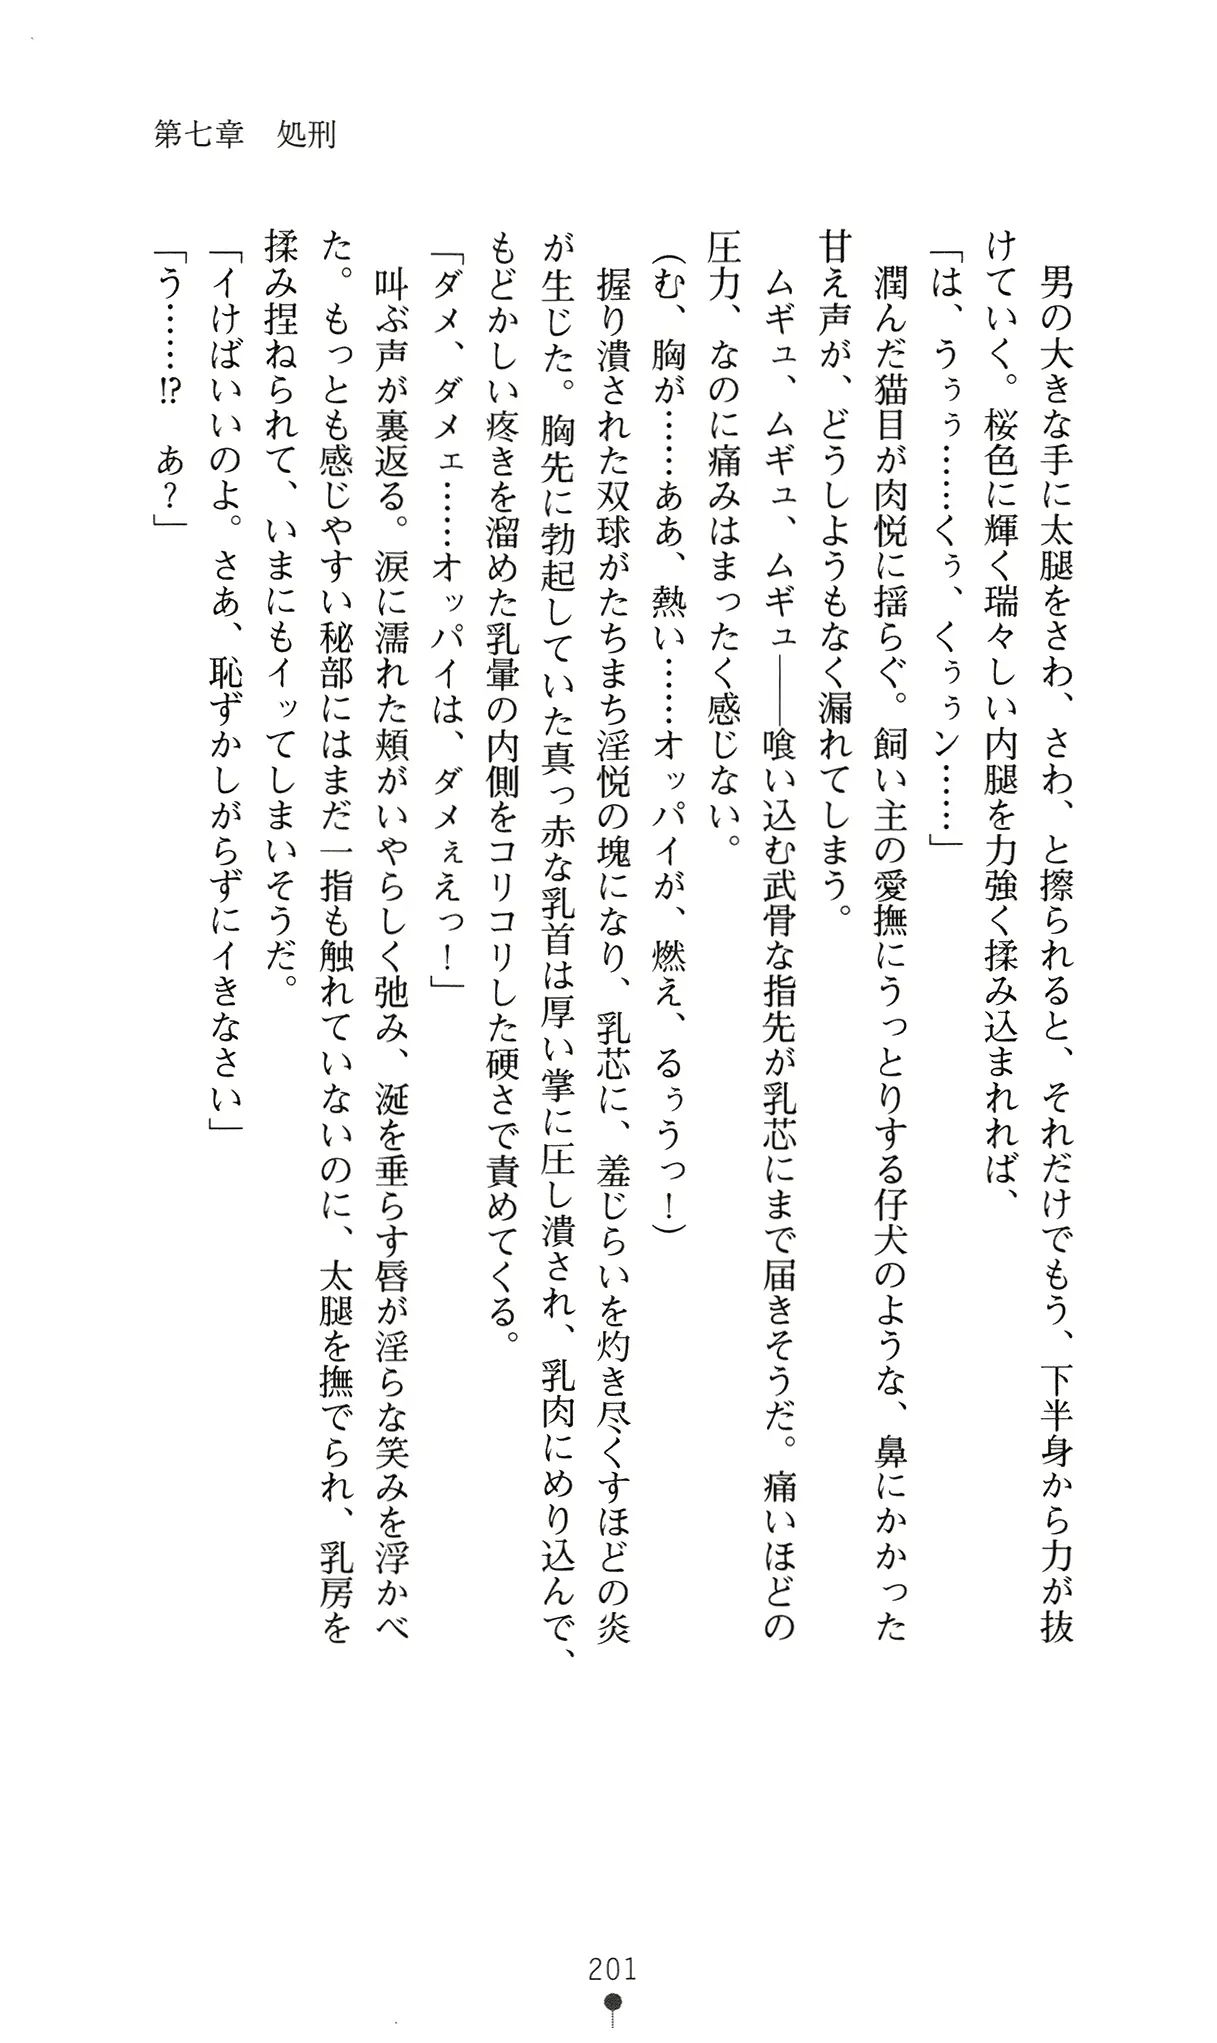 第七章　処刑
　男の大きな手に太腿をさわ、さわ、と擦られると、それだけでもう、下半身から力が抜
けていく。桜色に輝く瑞々しい内腿を力強く揉み込まれれば、
「は、うぅぅ……くぅ、くぅぅン……」
　潤んだ猫目が肉悦に揺らぐ。飼い主の愛撫にうっとりする仔犬のような、鼻にかかった
甘え声が、どうしようもなく漏れてしまう。
　ムギュ、ムギュ、ムギュ――喰い込む武骨な指先が乳芯にまで届きそうだ。痛いほどの
圧力、なのに痛みはまったく感じない。
（む、胸が……ああ、熱い……オッパイが、燃え、るぅうっ！）
　握り潰された双球がたちまち淫悦の塊になり、乳芯に、羞じらいを灼き尽くすほどの炎
が生じた。胸先に勃起していた真っ赤な乳首は厚い掌に圧し潰され、乳肉にめり込んで、
もどかしい疼きを溜めた乳暈の内側をコリコリした硬さで責めてくる。
「ダメ、ダメェ……オッパイは、ダメぇえっ！」
　叫ぶ声が裏返る。涙に濡れた頬がいやらしく弛み、涎を垂らす唇が淫らな笑みを浮かべ
た。もっとも感じやすい秘部にはまだ一指も触れていないのに、太腿を撫でられ、乳房を
揉み捏ねられて、いまにもイッてしまいそうだ。
「イけばいいのよ。さあ、恥ずかしがらずにイきなさい」
「う……!?　あ？」
201